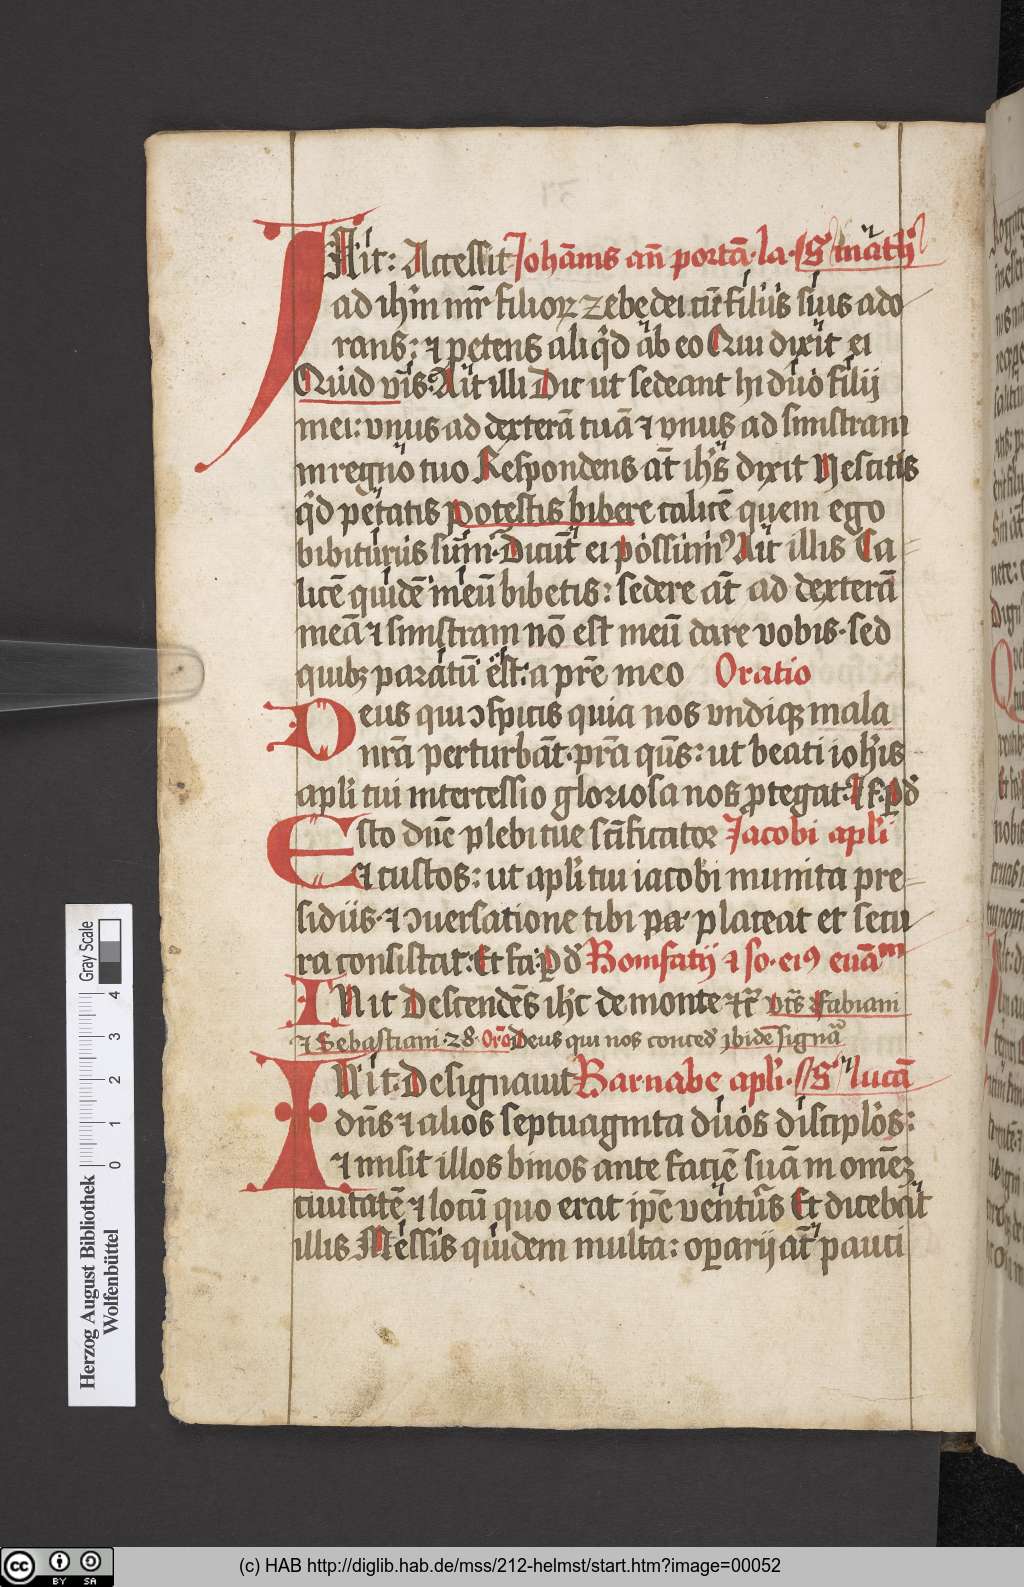 INit: Accessit Johānis an̄ portā la. S mathei
ad ihm̄ mr̄ filioꝝ zebedei cū filijs suis ado
rans: ⁊ petens aliqͥd ab eo Qui dixit ei
Quid vis: Ait illi Dic ut sedeant hi duo filij
mei: vnus ad dexterā tuā ⁊ vnus ad sinistram
in regno tuo Respondens āt ihs̄ dixit Nescitis
qͥd petatis potestis bibere calicē quem ego
bibiturus sum. Dicūt ei possumꝰ Ait illis Ca=
licē quidē meū bibetis: sedere āt ad dexterā
meā ⁊ sinistram nō est meū dare vobis. sed
quibꝫ paratū est: a pr̄e meo Oratio
Deus qui ↄspicis quia nos vndiqꝫ mala
nr̄a perturbāt. pr̄a qs̄: ut beati ioh̄is
apl̄i tui intercessio gloriosa nos ꝓtegat. P f. ꝑ d
Esto dn̄e plebi tue sc̄ificator Jacobi apl̄i
⁊ custos: ut apl̄i tui iacobi munita pre=
sidijs. ⁊ ↄuersatione tibi placeat et secu
ra consistat: Et fa: ꝑ d Bonifatij ⁊ so. eiꝰ euām
INit Descendēs ihc̄ de monte ⁊c̄ vt̄s Fabiani
⁊ Sebastiani. 28. Orō Deus qui nos conced ibidē signā
INit. Designauit Barnabe apl̄i. S lucā
dn̄s ⁊ alios septuaginta duos discipl̄os:
⁊ misit illos binos ante faciē suā in omēꝫ
ciuitatē ⁊ locū quo erat ip̄e venturꝰ Et dicebāt
illis Messis quidem multa: oꝑarij āt pauci
Herzog August Bibliothek
Wolfenbüttel
Gray Scale
0 1 2 3 4
cc BY SA
(c) HAB http://diglib.hab.de/mss/212-helmst/start.htm?image=00052